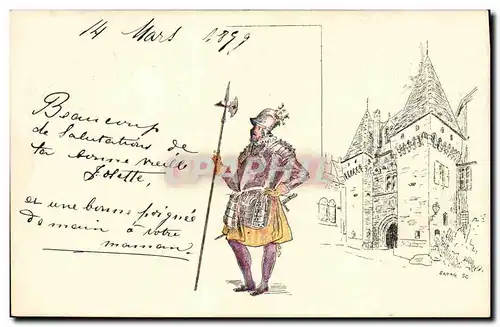 14 Mars 1899
Beaucoup
de Salutations de
ta bonne vieille
Josette,
et une bonne poignée
de main à votre
maman.